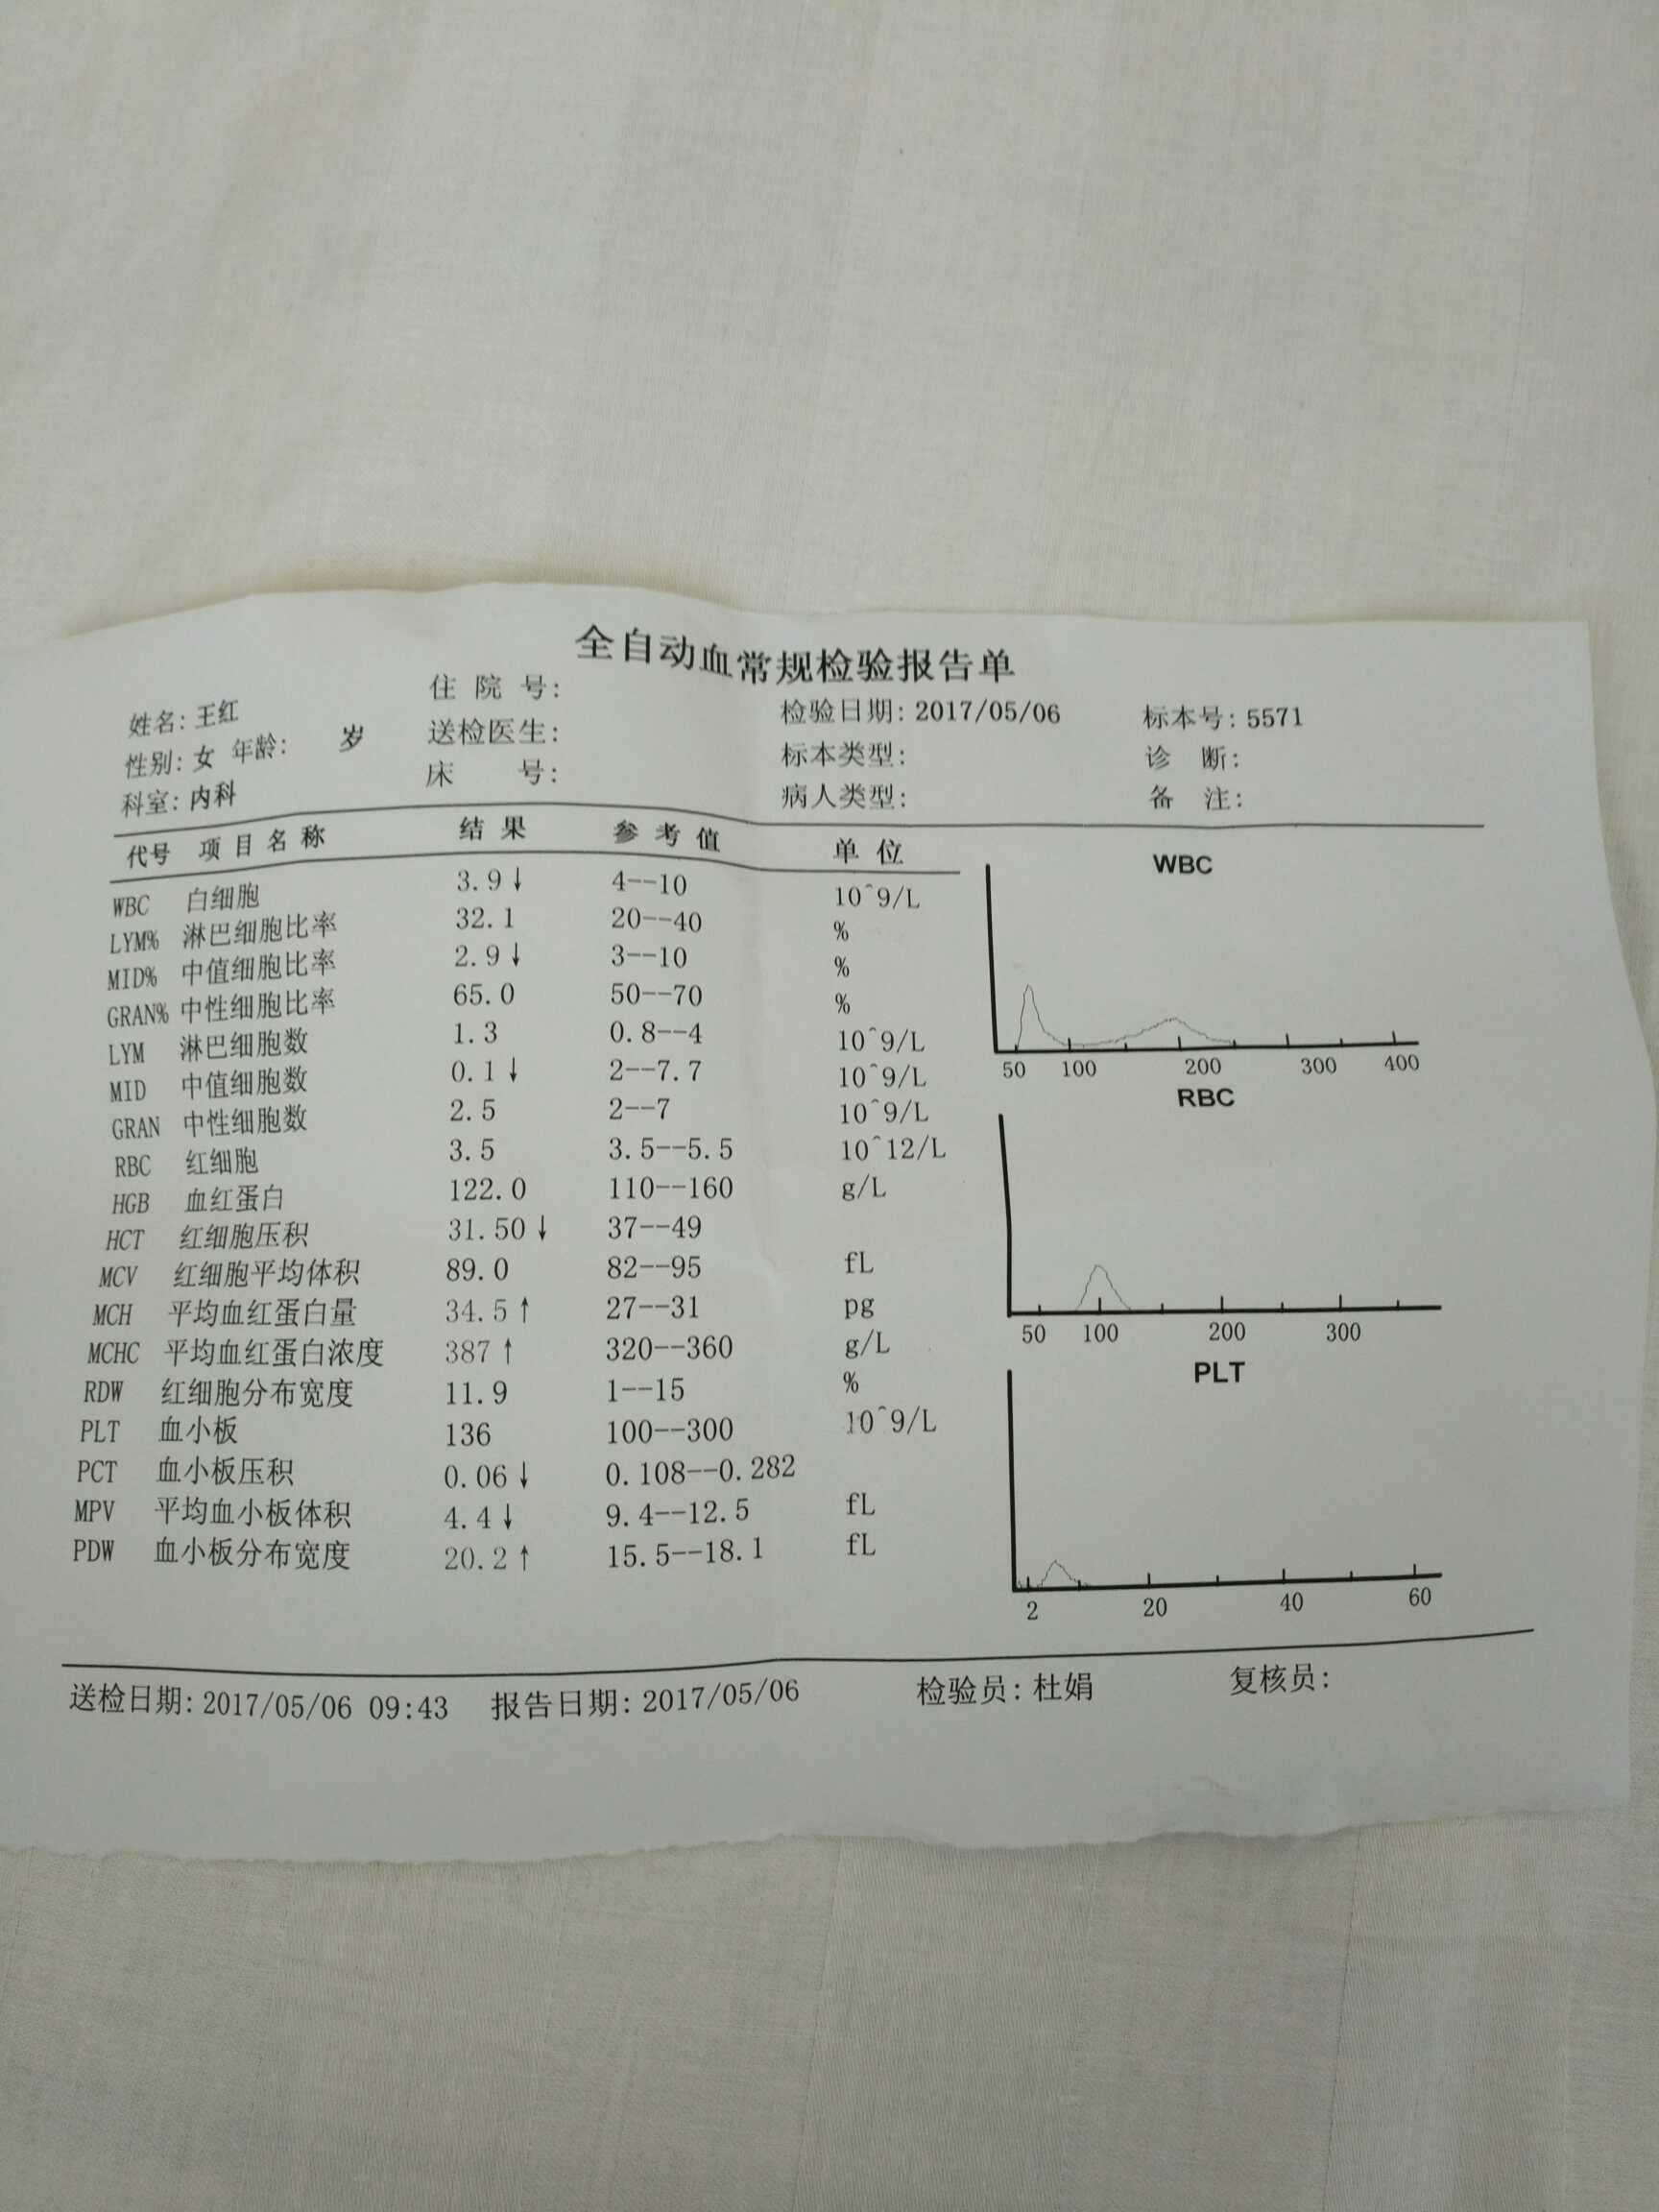 全自动血常规检验报告单
姓名: 王红 住 院 号: 检验日期: 2017/05/06 标本号: 5571
性别: 女 年龄: 岁 送检医生: 标本类型: 诊 断:
科室: 内科 床 号: 病人类型: 备 注:
代号 项目名称 结果 参考值 单位
WBC 白细胞 3.9↓ 4--10 10^9/L
LYM% 淋巴细胞比率 32.1 20--40 %
MID% 中值细胞比率 2.9↓ 3--10 %
GRAN% 中性细胞比率 65.0 50--70 %
LYM 淋巴细胞数 1.3 0.8--4 10^9/L
MID 中值细胞数 0.1↓ 2--7.7 10^9/L
GRAN 中性细胞数 2.5 2--7 10^9/L
RBC 红细胞 3.5 3.5--5.5 10^12/L
HGB 血红蛋白 122.0 110--160 g/L
HCT 红细胞压积 31.50↓ 37--49
MCV 红细胞平均体积 89.0 82--95 fL
MCH 平均血红蛋白量 34.5↑ 27--31 pg
MCHC 平均血红蛋白浓度 387↑ 320--360 g/L
RDW 红细胞分布宽度 11.9 1--15 %
PLT 血小板 136 100--300 10^9/L
PCT 血小板压积 0.06↓ 0.108--0.282
MPV 平均血小板体积 4.4↓ 9.4--12.5 fL
PDW 血小板分布宽度 20.2↑ 15.5--18.1 fL
WBC
50 100 200 300 400
RBC
50 100 200 300
PLT
2 20 40 60
送检日期: 2017/05/06 09:43 报告日期: 2017/05/06 检验员: 杜娟 复核员: